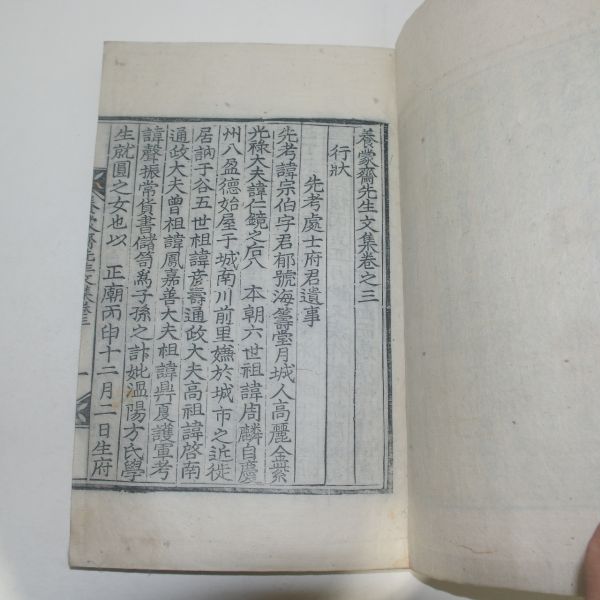 養蒙齋先生文集卷之三
行狀
先考處士府君遺事
先考諱宗伯字君郁號海籌堂月城人高麗金紫
光祿大夫諱仁鏡之后入 本朝六世祖諱周麟自慶
州入盈德始屋于城南川前里嫌於城市之近徙
居訥子谷五世祖諱彦壽通政大夫高祖諱啓南
通政大夫曾祖諱鳳嘉善大夫祖諱興夏護軍考
諱聲振常貨書儲笥爲子孫之計妣溫陽方氏學
生就圓之女也以 正廟丙申十二月二日生府
先生文集卷三 一